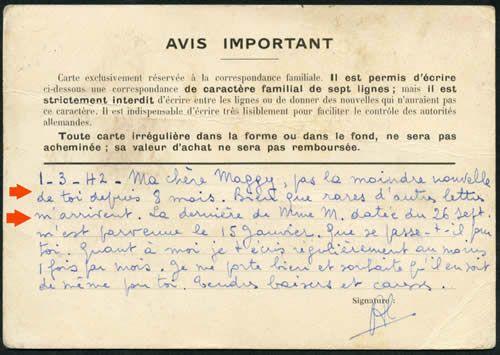 AVIS IMPORTANT
Carte exclusivement réservée à la correspondance familiale. Il est permis d'écrire
ci-dessous une correspondance de caractère familial de sept lignes; mais il est
strictement interdit d'écrire entre les lignes ou de donner des nouvelles qui n'auraient pas
ce caractère. Il est indispensable d'écrire très lisiblement pour faciliter le contrôle des autorités
allemandes.
Toute carte irrégulière dans la forme ou dans le fond, ne sera pas
acheminée; sa valeur d'achat ne sera pas remboursée.
1-3-42- Ma chère Maggy, pas la moindre nouvelle
de toi depuis 8 mois. Bien que rares d'autres lettres
m'arrivent. La dernière de Mme M. datée du 26 sept.
m'est parvenue le 15 Janvier. Que se passe-t-il pour
toi. Quant à moi je t'écris régulièrement au moins
1 fois par mois. Je me porte bien et souhaite qu'il en soit
de même pour toi. Tendres baisers et
Signature: